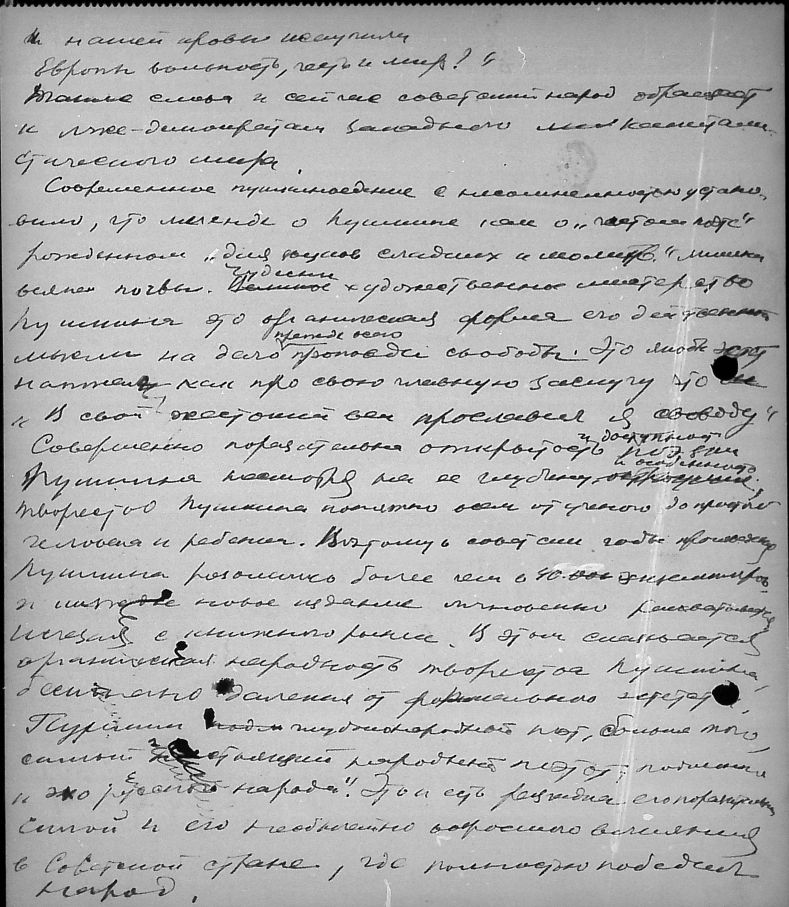 и нашей кровью искупили
Европы вольность, честь и мир?"
Такие слова и сейчас советский народ обращает
к лже-демократам западного капитали-
стического мира.
Современное пушкиноведение с несомненностью устано-
вило, что легенда о Пушкине как о „чистом поэте"
рожденном „для звуков сладких и молитв" лишена
всякой почвы. Великое чудесное художественное мастерство
Пушкина это органическая форма его действенной
мысли на дело прежде всего проповеди свободы. Это
как про свою главную заслугу что
„В свой жестокий век прославил я свободу"
Совершенно поразительна открытость и доступность поэзии
Пушкина несмотря на ее глубину и особенность
творчество Пушкина понятно всем от ученого до простого
человека и ребенка. Поэтому в советские годы произведения
Пушкина разошлись более чем в 40 экземпляров,
и каждое новое издание мгновенно расхватывается
исчезая с книжного рынка. В этом сказывается
органическая народность творчества Пушкина,
бесконечно далекая от формального эстетства.
Пушкин глубоко народный поэт, больше того,
самый настоящий народный поэт, подлинное
„эхо русского народа". Это и есть разгадка его поразительной
силой и его необычайно возросшего влияния
в Советской стране, где полностью победил
народ.